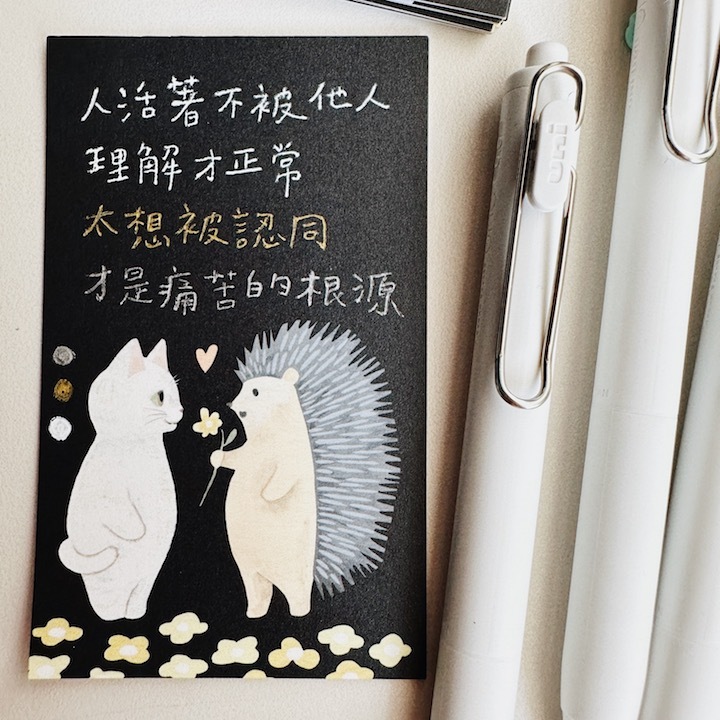 人活著不被他人
理解才正常
太想被認同
才是痛苦的根源
uni